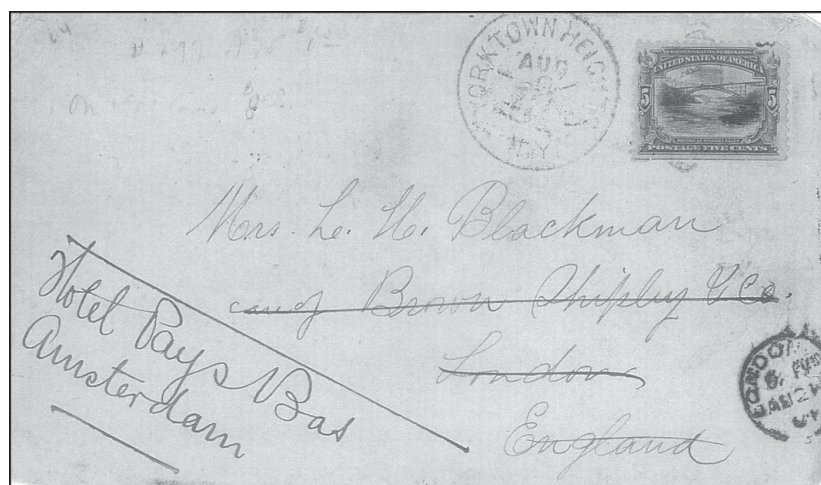 # 297
YORKTOWN HEIGHTS
AUG
N.Y.
UNITED STATES OF AMERICA
5 5
POSTAGE FIVE CENTS
Mrs. L. H. Blackman
care of Brown Shipley & Co.
London
England
Hotel Pays Bas
Amsterdam
LONDON
AUG